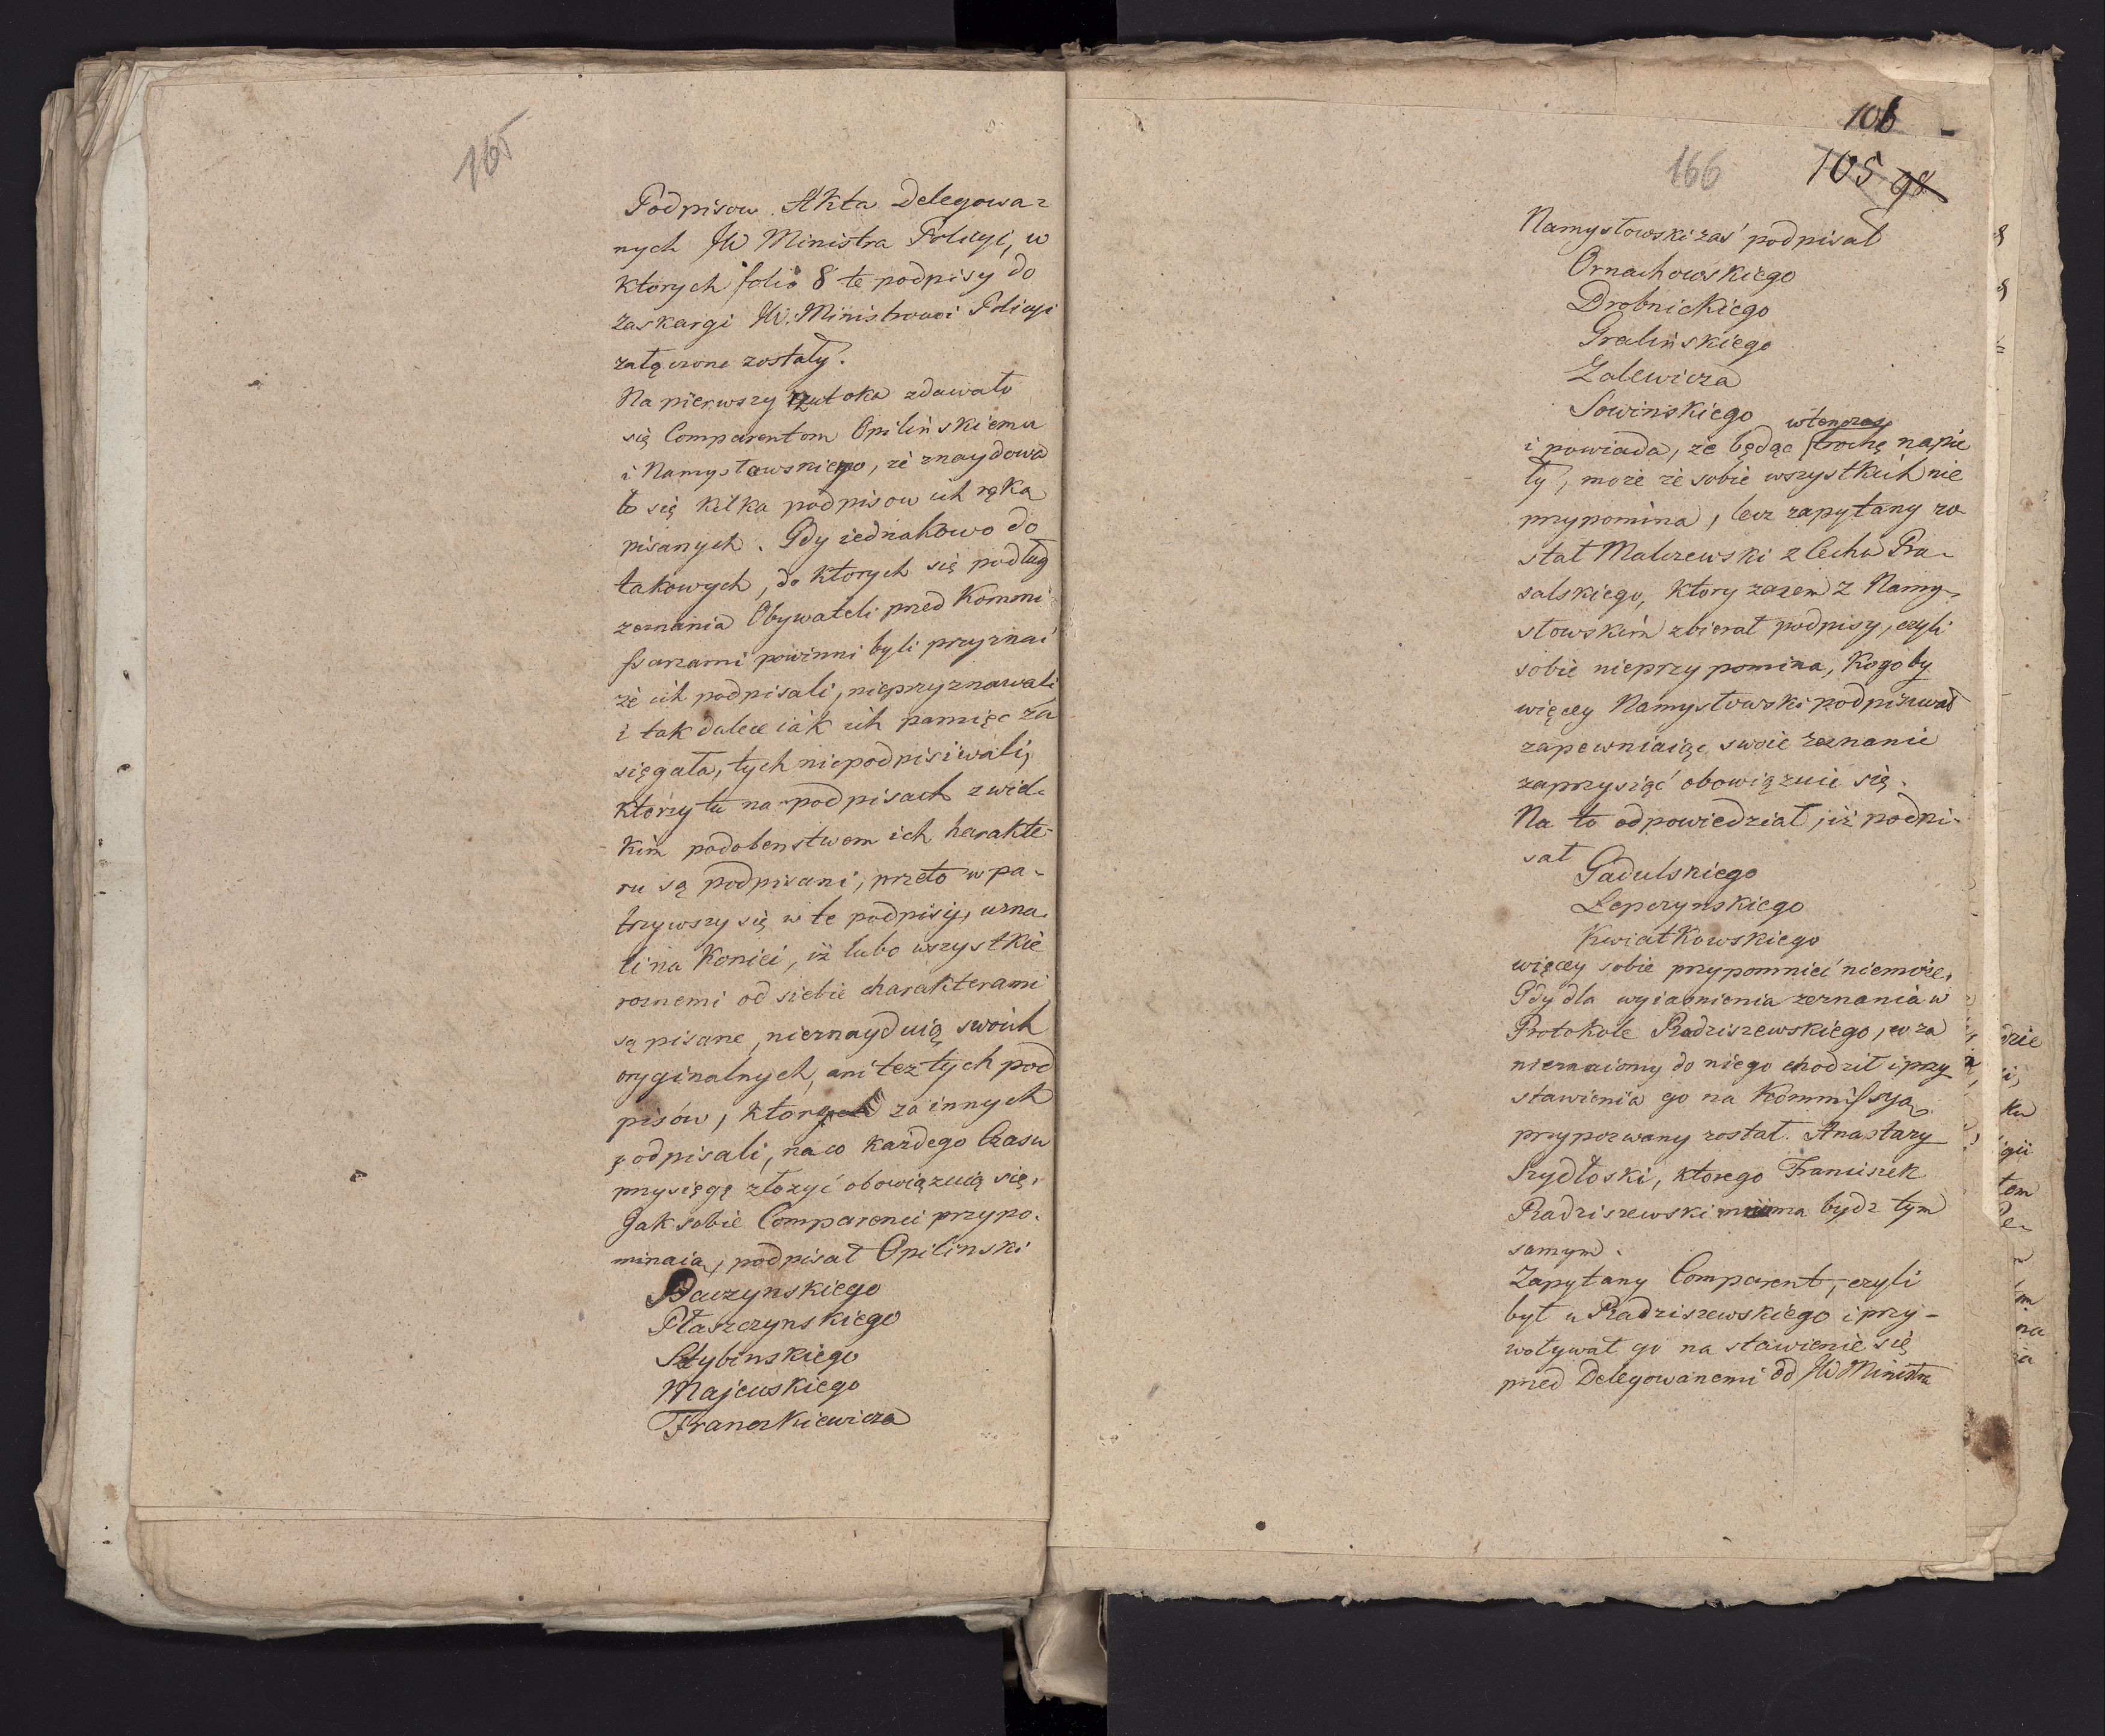 165
Podpisow Akta Delegowa=
nych JW Ministra Policyi, w
ktorych folio 8 te podpisy do
zaskargi JW. Ministrowi Policyi
załączone zostały.
Na pierwszy rzut oka zdawało
się Comparentom Opilińskiemu
i Namysłowskiego, że znaydowa
ło się kilka podpisow ich ręką
pisanych. Gdy iednakowo do
takowych, do ktorych się podług
zeznania Obywateli przed Kommi
ssarzami powinni byli przyznać
że ich podpisali, nieprzyznawali
i tak dalece iak ich pamięc za
sięgała, tych niepodpisiwali,
ktorzy tu na podpisach z wiel=
kim podobenstwem ich harakte=
ru są podpisani, przeto wpa=
trzywszy się w te podpisy, uzna=
li na koniec, iż lubo wszystkie
roznemi od siebie charakterami
są pisane, nieznayduią swoich
oryginalnych, ani też tych pod
pisów, ktorych za innych
podpisali, na co każdego Czasu
przysięgę złożyć obowiązuią się.
Jak sobie Comparenci przypo=
minaią, podpisał Opilinski
Baczynskiego
Płaszczynskiego
Stybinskiego
Majewskiego
Franczkiewicza
106
166 105 98
Namysłowski zaś podpisał
Ornachowskiego
Drobnickiego
Gralińskiego
Zalewicza
Sowinskiego
wtenczas
i powiada, że będąc trochę napi
ty, może że sobie wszystkich nie
przypomina, lecz zapytany zo
stał Malczewski z Cechu Pra=
salskiego, ktory razem z Namy=
słowskim zbierał podpisy, czyli
sobie nieprzypomina, kogo by
więcey Namysłowski podpisywał
zapewniaiąc swoie zeznanie
zaprzysiąć obowiązuie się.
Na to odpowiedział, iż podpi=
sał
Gadulskiego
Lepczynskiego
Kwiatkowskiego
więcey sobie przypomnieć niemoże.
Gdy dla wyiaśnienia zeznania w
Protokole Radziszewskiego, co za
nieznaiomy do niego chodził i przy
stawienia go na Kommissyą
przyzwany został. Anastazy
Szydłoski, ktorego Franciszek
Radziszewski mniema bydz tym
samym.
Zapytany Comparent, czyli
był u Radziszewskiego i przy=
woływał go na stawienie się
przed Delegowanemi od JW Ministra